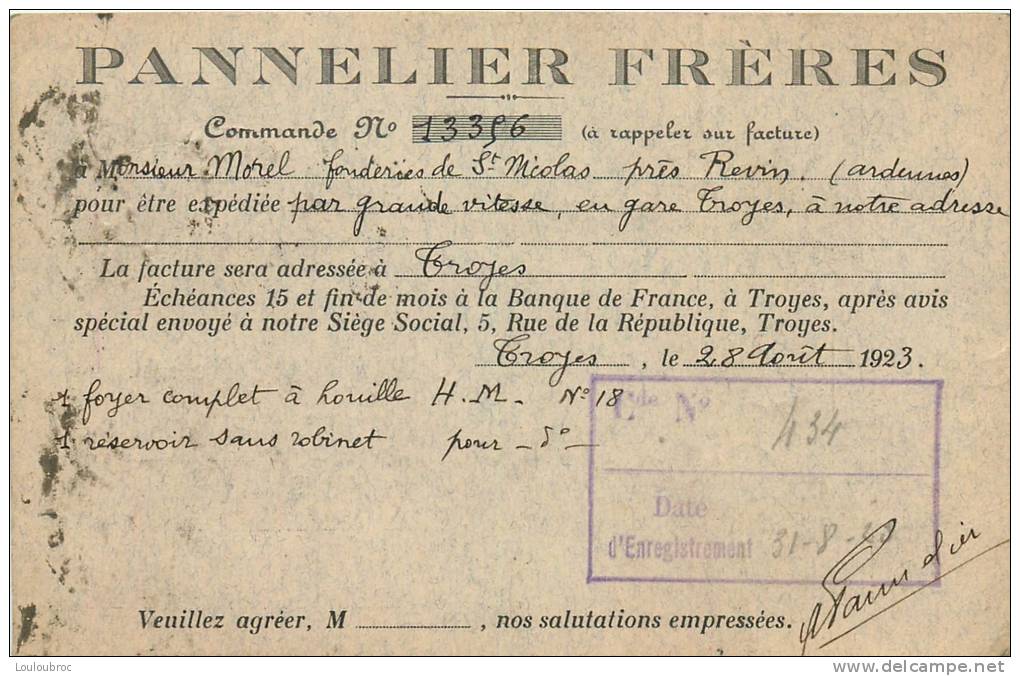 PANNELIER FRÈRES
Commande Nº 13396 (à rappeler sur facture)
à Monsieur Morel fonderies de St Nicolas près Revin. (ardennes)
pour être expédiée par grande vitesse, en gare Troyes, à notre adresse
La facture sera adressée à Troyes
Échéances 15 et fin de mois à la Banque de France, à Troyes, après avis
spécial envoyé à notre Siège Social, 5, Rue de la République, Troyes.
Troyes, le 28 Août 1923.
1 foyer complet à houille H.M. Nº 18
1 réservoir sans robinet pour - dº -
Cde Nº 434
Date
d'Enregistrement 31-8-23
Pannelier
Veuillez agréer, M , nos salutations empressées.
Louloubroc
www.delcampe.net